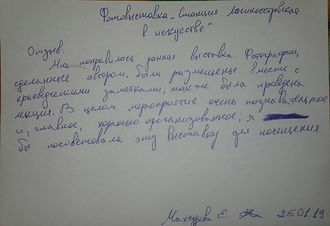 Фотовыставка „Станция Лосиноостровская
в искусстве"
Отзыв:
Мне понравилась данная выставка. Фотографии,
сделанные автором, были размещены вместе с
краеведческими заметками; также была проведена
лекция. В целом мероприятие очень познавательное
и, главное, хорошо организованное; я
бы посоветовала эту выставку для посещения.
Е. 25.01.19